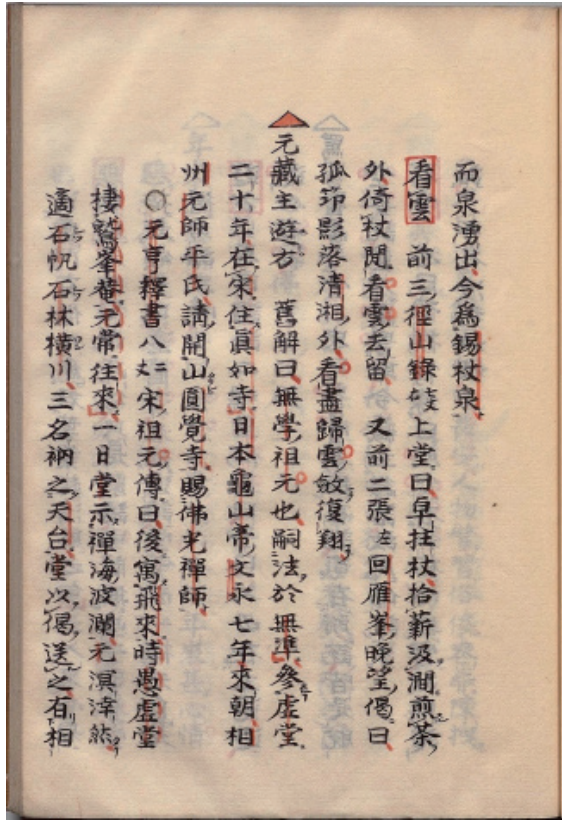 而泉湧出今爲錫杖泉
看雲 前三徑山錄 上堂曰卓拄杖拾薪汲澗煎茶
外倚杖閑看雲去留 又前二張左回雁峯晩望偈曰
孤筇影落清湘外看盡歸雲斂復翔
元藏主遊方 舊解曰無學祖元也嗣法於無準參虛堂
二十年在宋住眞如寺日本龜山帝文永七年來朝相
州元師平氏請開山圓覺寺賜佛光禪師
○元亨釋書八 宋祖元傳曰後寓飛來時愚虛堂
棲鷲峯菴元常往來一日堂示禪海波瀾元溟涬然
適石帆石林横川三名衲之天台堂以偈送之有相